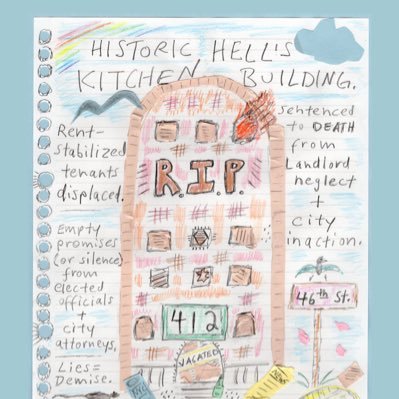 HISTORIC HELL'S
KITCHEN BUILDING.
Rent-
stabilized
tenants
displaced.
Empty
promises
(or silence)
from
elected
officials
+
city
attorneys,
Lies=
Demise.
R.I.P.
412
VACATED
sentenced
to DEATH
from
Landlord
neglect
+
city
inaction.
46th St.